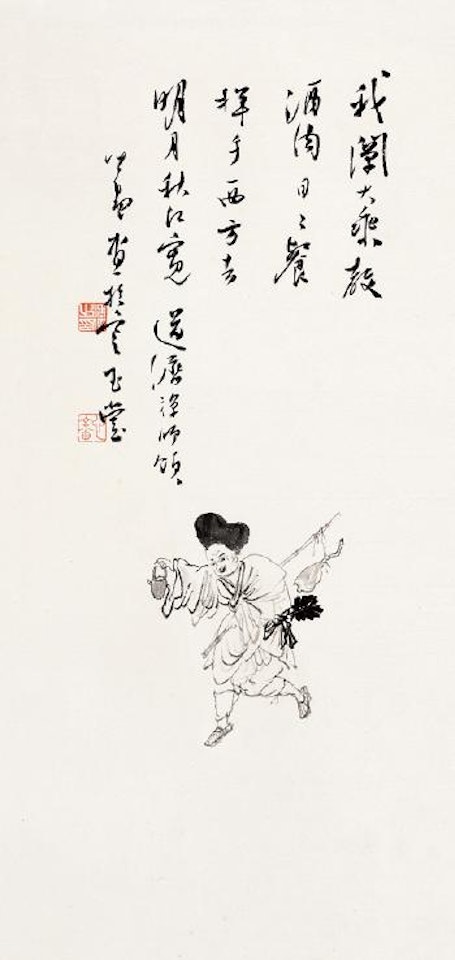 我闡大乘教
酒肉日〻餐
揮手西方去
明月秋江寬 道濟禪師頌
心畬畫於寒玉堂